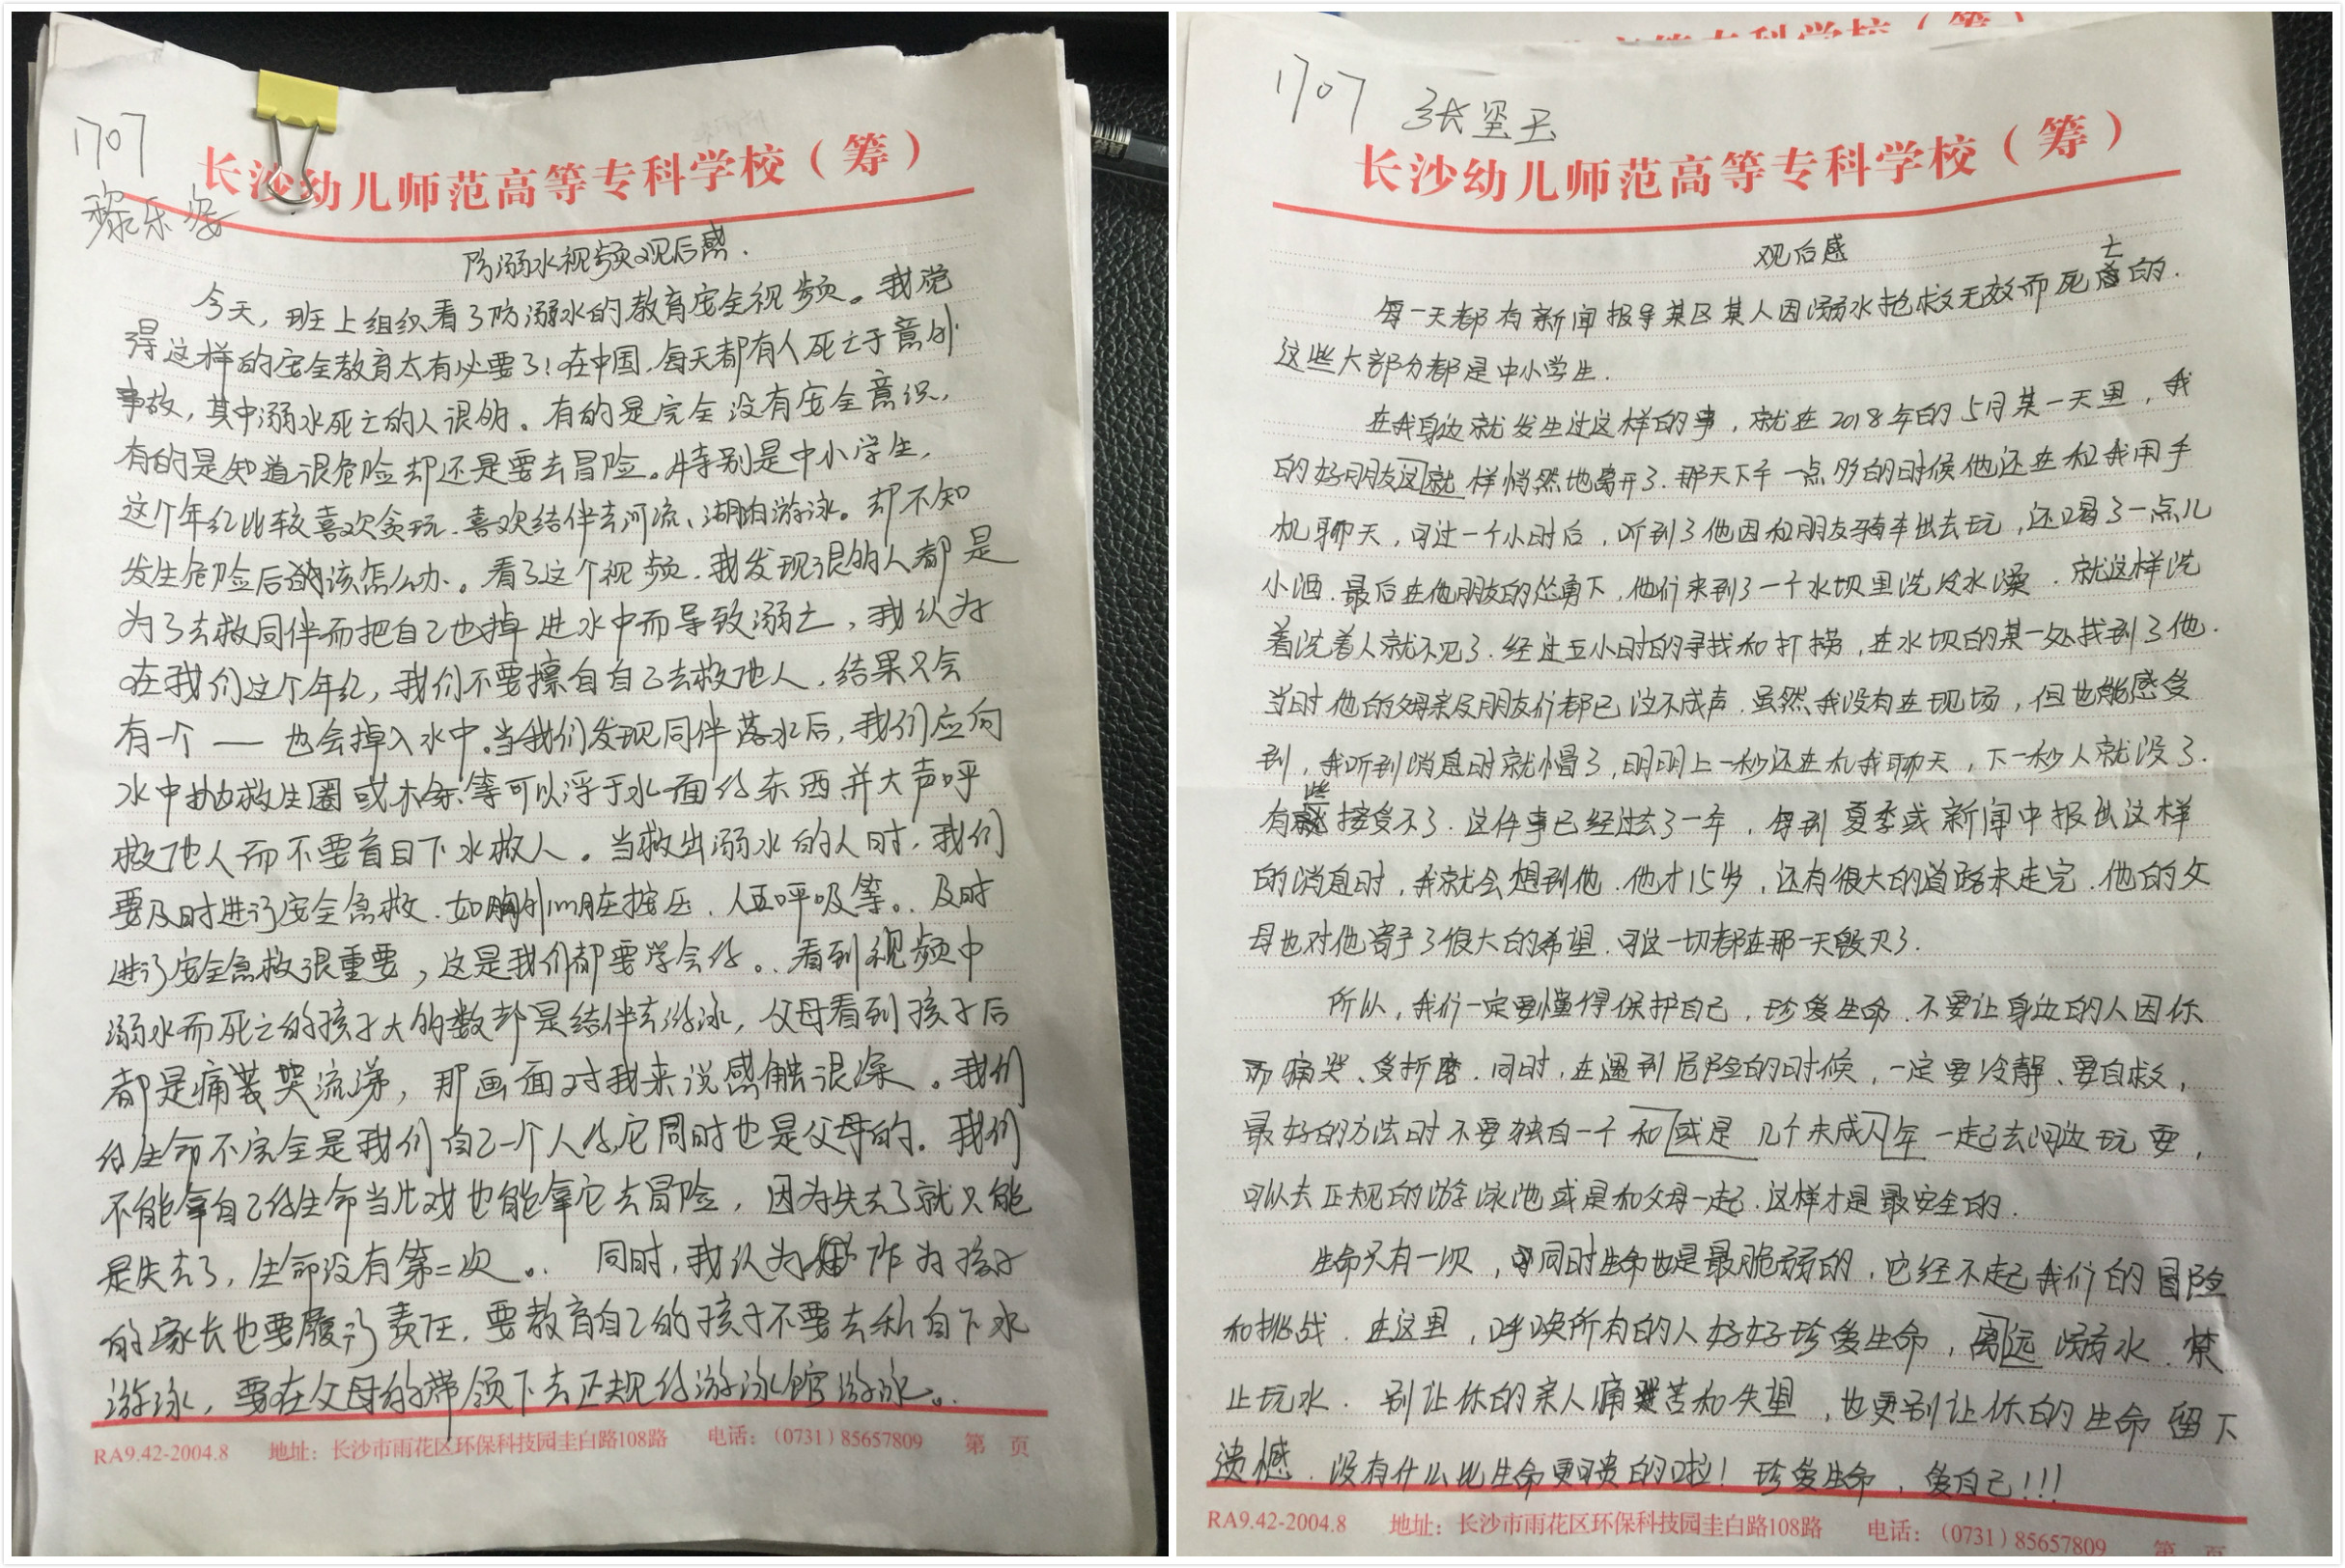 1707
黎乐姿
长沙幼儿师范高等专科学校（筹）
防溺水视频观后感.
今天，班上组织看了防溺水的教育安全视频。我觉
得这样的安全教育太有必要了！在中国，每天都有人死亡于意外
事故，其中溺水死亡的人很多。有的是完全没有安全意识，
有的是知道很危险却还是要去冒险。特别是中小学生，
这个年纪比较喜欢贪玩，喜欢结伴去河流、湖泊游泳。却不知
发生危险后该怎么办。看了这个视频，我发现很多人都是
为了去救同伴而把自己也掉进水中而导致溺亡，我认为
在我们这个年纪，我们不要擅自自己去救他人，结果只会
有一个 — 也会掉入水中。当我们发现同伴落水后，我们应向
水中抛救生圈或木条等可以浮于水面的东西并大声呼
救他人而不要盲目下水救人。当救出溺水的人时，我们
要及时进行安全急救，如胸外心脏按压，人工呼吸等。及时
进行安全急救很重要，这是我们都要学会的。看到视频中
溺水而死亡的孩子大多数都是结伴去游泳，父母看到孩子后
都是痛哭流涕，那画面对我来说感触很深。我们
的生命不完全是我们自己一个人的，它同时也是父母的。我们
不能拿自己的生命当儿戏也能拿它去冒险，因为失去了就只能
是失去了，生命没有第二次。同时，我认为作为孩子
的家长也要履行责任，要教育自己的孩子不要去私自下水
游泳，要在父母的带领下去正规的游泳馆游泳。
RA9.42-2004.8 地址：长沙市雨花区环保科技园圭白路108路 电话：（0731）85657809 第 页
1707 张玺玉
长沙幼儿师范高等专科学校（筹）
观后感
每一天都有新闻报导某区某人因溺水抢救无效而死亡的.
这些大部分都是中小学生.
在我身边就发生过这样的事，就在2018年的5月某一天里，我
的好朋友就这样悄然地离开了.那天下午一点多的时候他还在和我用手
机聊天，可过一个小时后，听到了他因和朋友骑车出去玩，还喝了一点儿
小酒.最后在他朋友的怂恿下，他们来到了一个水坝里洗冷水澡.就这样洗
着洗着人就不见了.经过五小时的寻找和打捞，在水坝的某一处找到了他.
当时他的父母亲及朋友们都已泣不成声.虽然我没有在现场，但也能感受
到，我听到消息时就懵了，明明上一秒还在和我聊天，下一秒人就没了.
有些接受不了.这件事已经过去了一年，每到夏季或新闻中报出这样
的消息时，我就会想到他.他才15岁，还有很大的道路未走完.他的父
母也对他寄予了很大的希望.可这一切都在那一天毁灭了.
所以，我们一定要懂得保护自己，珍爱生命.不要让身边的人因你
而痛哭、受折磨.同时，在遇到危险的时候，一定要冷静、要自救，
最好的方法时不要独自一个或是和几个未成年人一起去河边玩耍，
可以去正规的游泳池或是和父母一起.这样才是最安全的.
生命只有一次，同时生命也是最脆弱的，它经不起我们的冒险
和挑战.在这里，呼唤所有的人好好珍爱生命，远离溺水.禁
止玩水.别让你的亲人痛苦和失望，也更别让你的生命留下
遗憾.没有什么比生命更可贵的啦！珍爱生命，爱自己!!!
RA9.42-2004.8 地址：长沙市雨花区环保科技园圭白路108路 电话：（0731）85657809 第 页